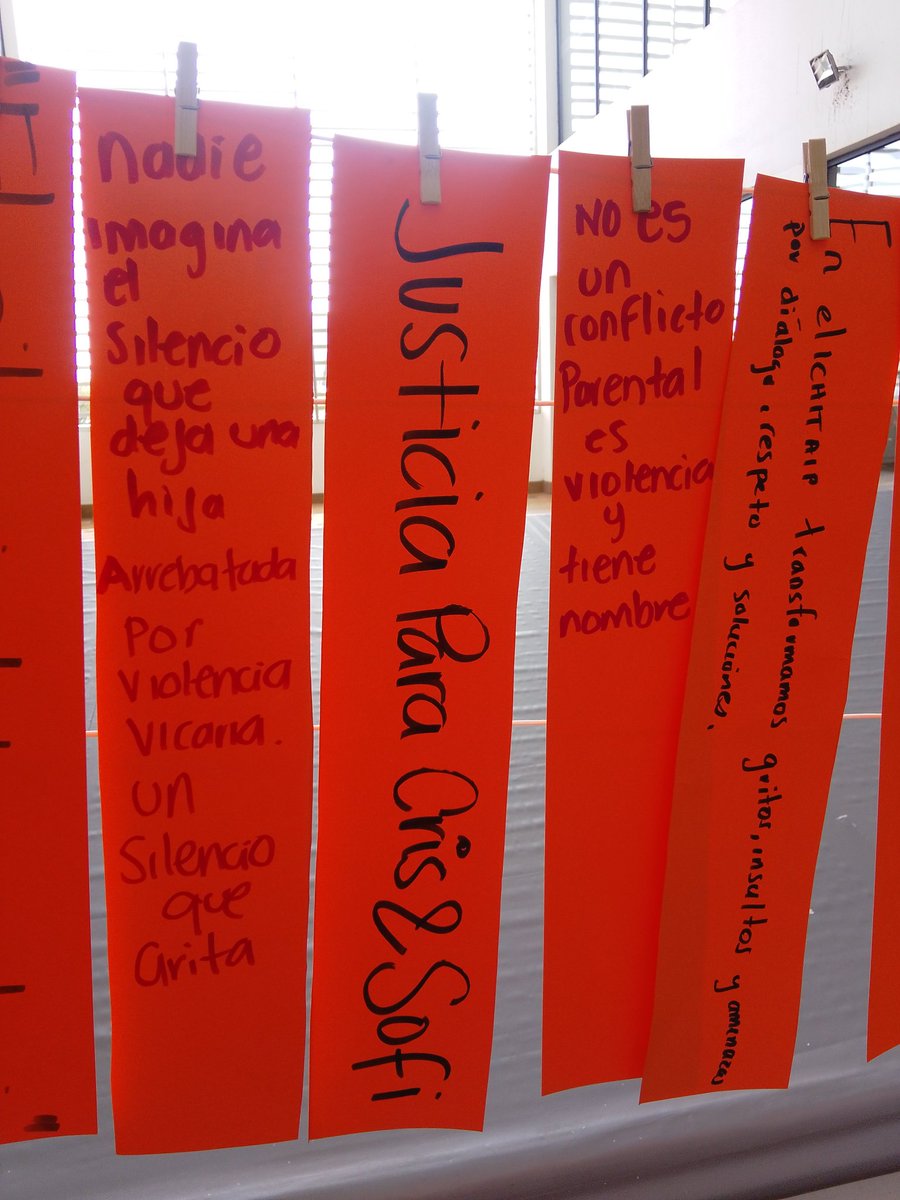 Nadie
imagina
el
Silencio
que
deja una
hija
Arrebatada
Por
Violencia
Vicaria.
UN
Silencio
que
Grita
Justicia Para Cris & Sofi
NO es
un
conflicto
Parental
es
violencia
y
tiene
nombre
En el ICHITAIP transformamos gritos, insultos y amenazas
por diálogo, respeto y soluciones.